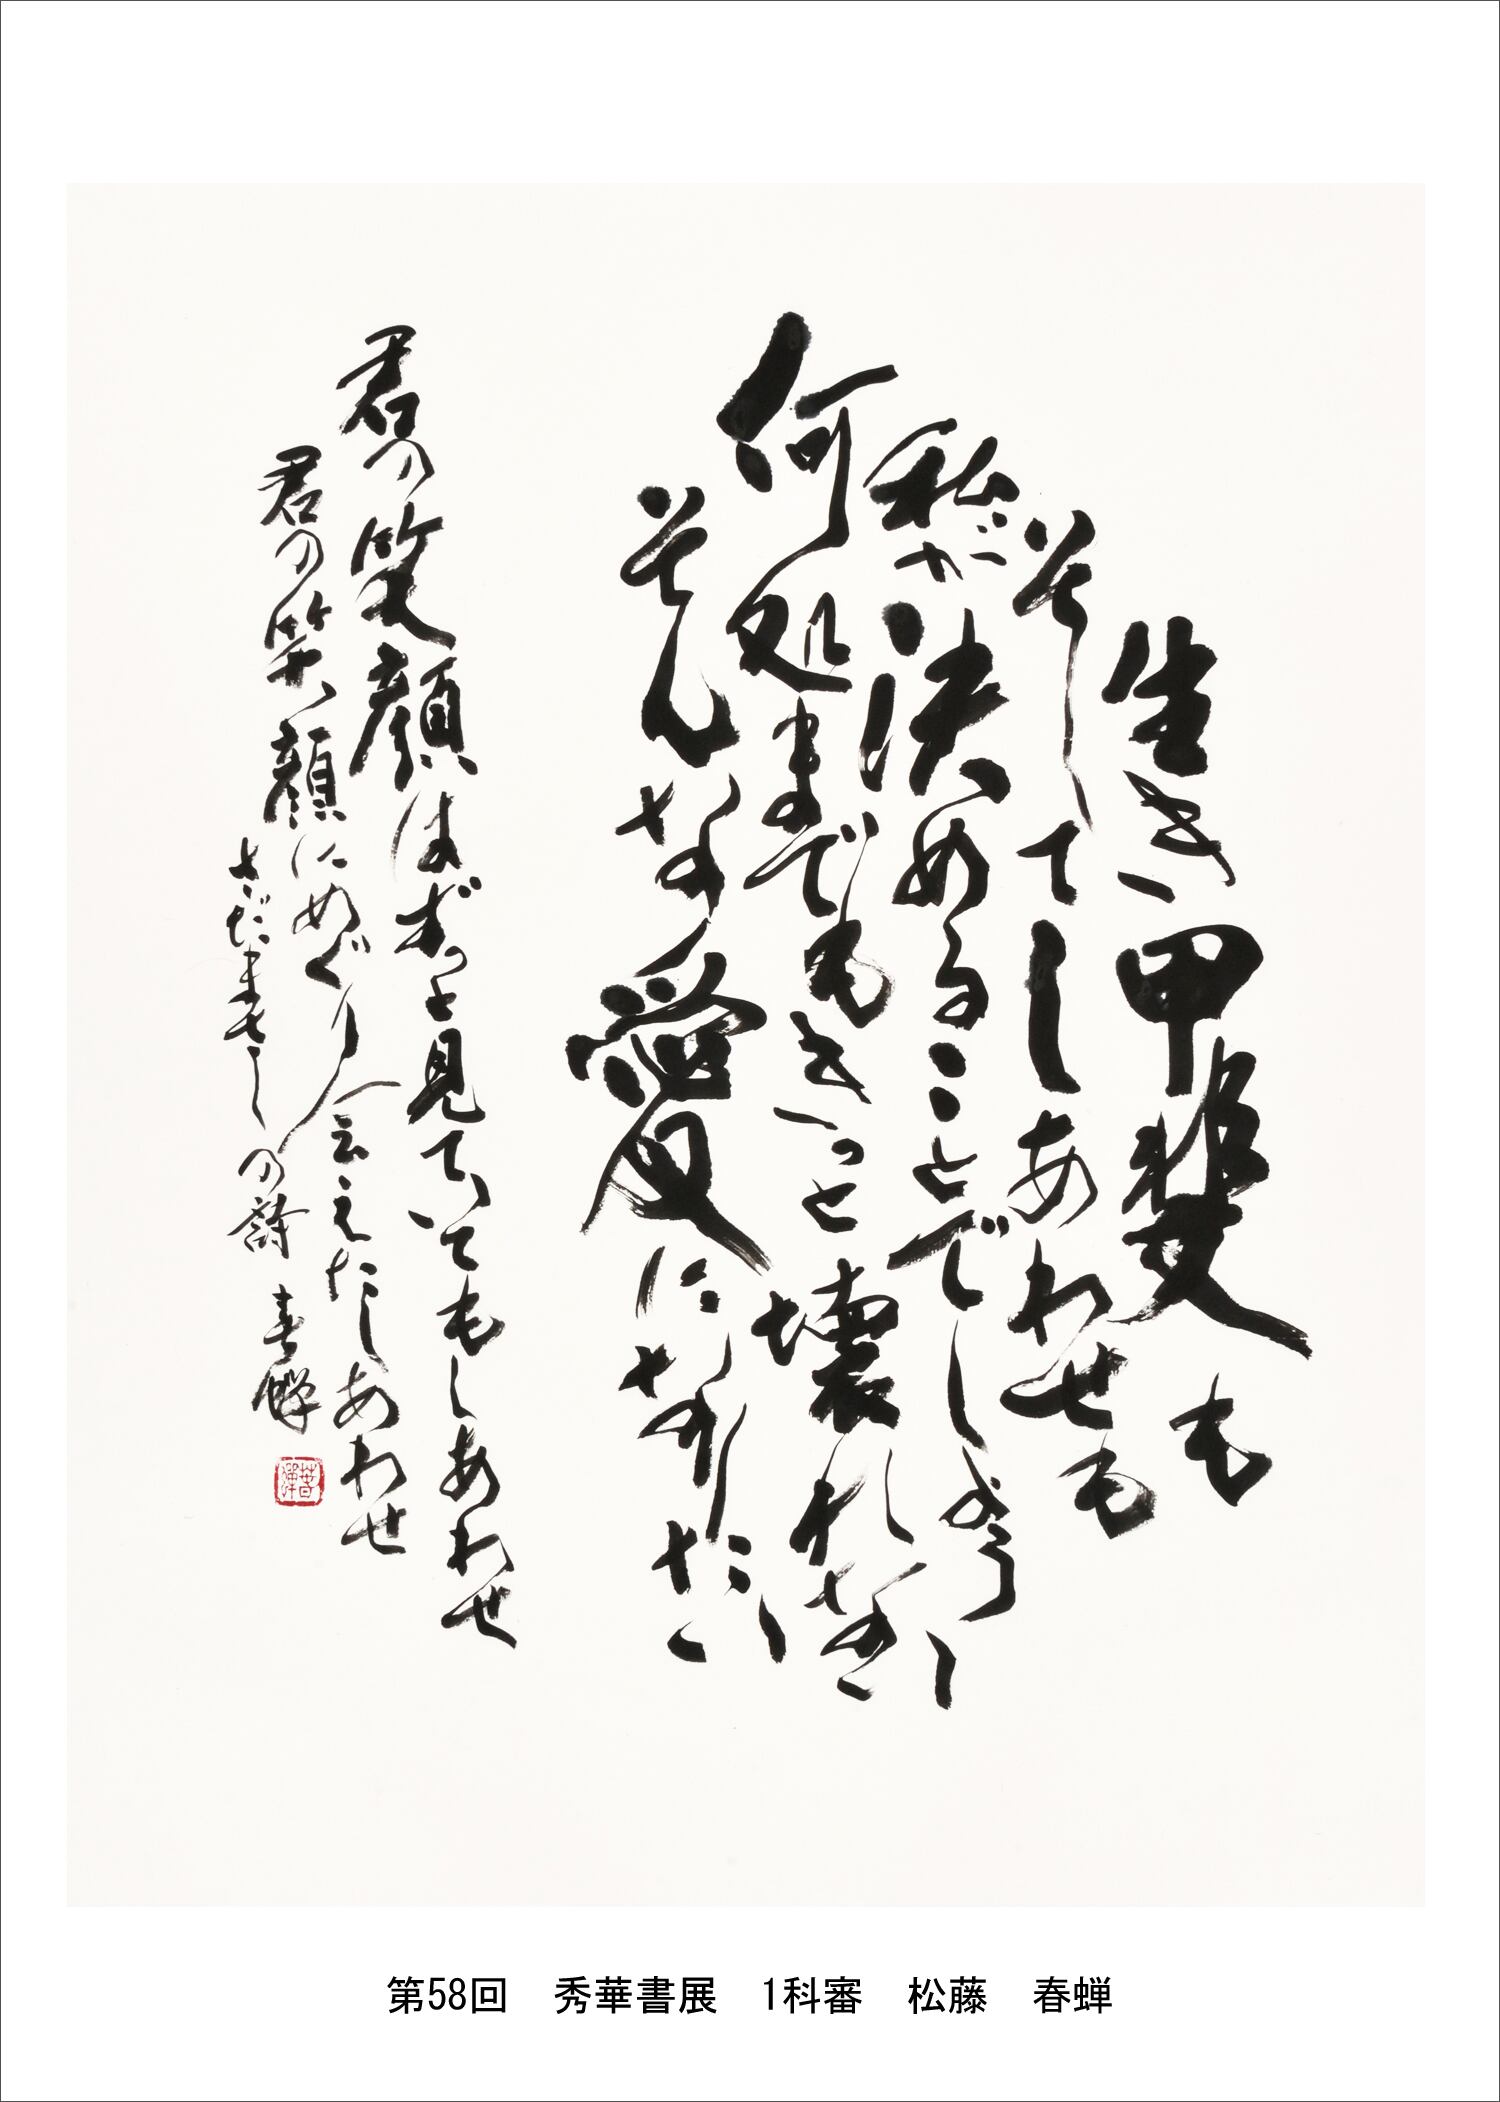 生き甲斐も
そしてしあわせも
私が決めることでしょう
何処までもきっと壊れない
そんな愛になりたい
君の笑顔はずっと見ていてもしあわせ
君の笑顔にめぐり会えたしあわせ
さだまさしの詩 春蝉
第58回 秀華書展 1科審 松藤 春蝉